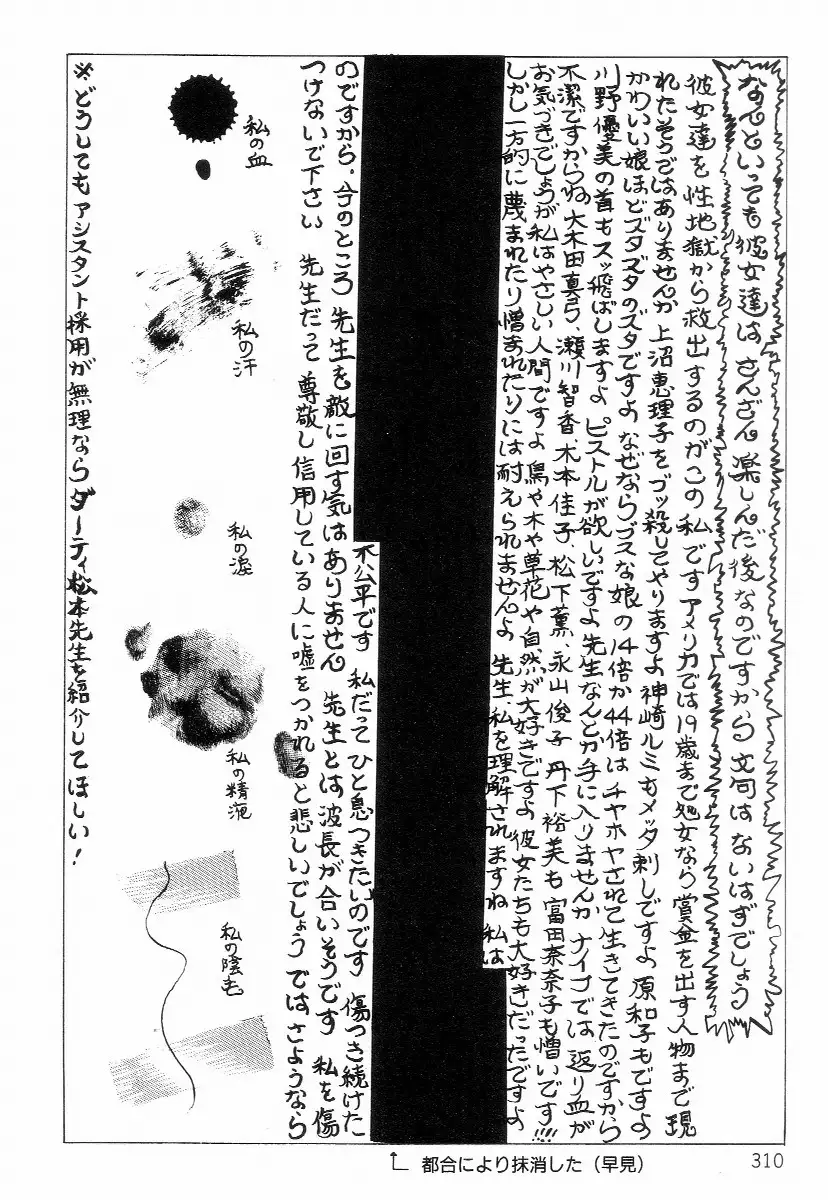 なんといっても彼女達はさんざん楽しんだ後なのですから文句はないはずでしょう
彼女達を性地獄から救出するのがこの私ですアメリカでは19歳まで処女なら賞金を出す人物まで現
れたそうではありませんか 上沼恵理子をブッ殺してやりますよ神崎ルミもメッタ刺しですよ 原和子もですよ
かわいい娘ほどズタズタのズタですよ なぜならブスな娘の14倍か44倍はチヤホヤされて生きてきたのですから
川野優美の首もスッ飛ばしますよ ピストルが欲しいですよ先生なんとか手に入りませんか ナイフでは返り血が
不潔ですからね 大木田真弓、瀬川智香、木本佳子、松下薫、永山俊子 丹下裕美も富田奈奈子も憎いです!!!!
お気づきでしょうが私はやさしい人間ですよ 鳥や木や草花や自然が大好きですよ 彼女たちも大好きだったですよ
しかし一方的に蔑まれたり憎まれたりには耐えられませんよ 先生、私を理解されますね 私は
不公平です 私だってひと息つきたいのです 傷つき続けた
のですから、今のところ先生を敵に回す気はありません 先生とは波長が合いそうです 私を傷
つけないで下さい 先生だって尊敬し信用している人に嘘をつかれると悲しいでしょう ではさようなら
私の血
私の汗
私の涙
私の精液
私の陰毛
※どうしてもアシスタント採用が無理ならダーティ松本先生を紹介してほしい!
都合により抹消した（早見）
310